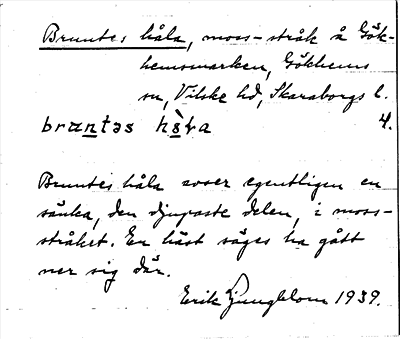 Bruntes håla, moss-stråk å Gök-
hemsmarken, Gökhems
sn, Vilske hd, Skaraborgs l.
4.
Bruntes håla avser egentligen en
sänka, den djupaste delen, i moss-
stråket. En häst säges ha gått
ner sig där.
Erik Ljungblom 1939.